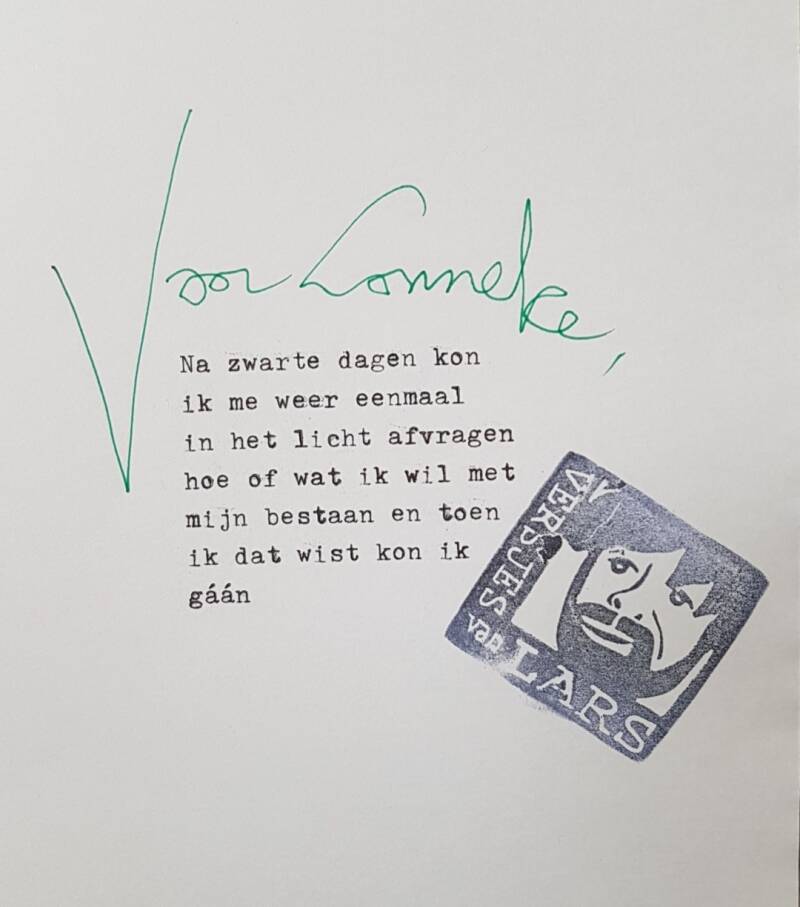 Voor Lonneke,
Na zwarte dagen kon
ik me weer eenmaal
in het licht afvragen
hoe of wat ik wil met
mijn bestaan en toen
ik dat wist kon ik
gáán
VERSJES
van LARS